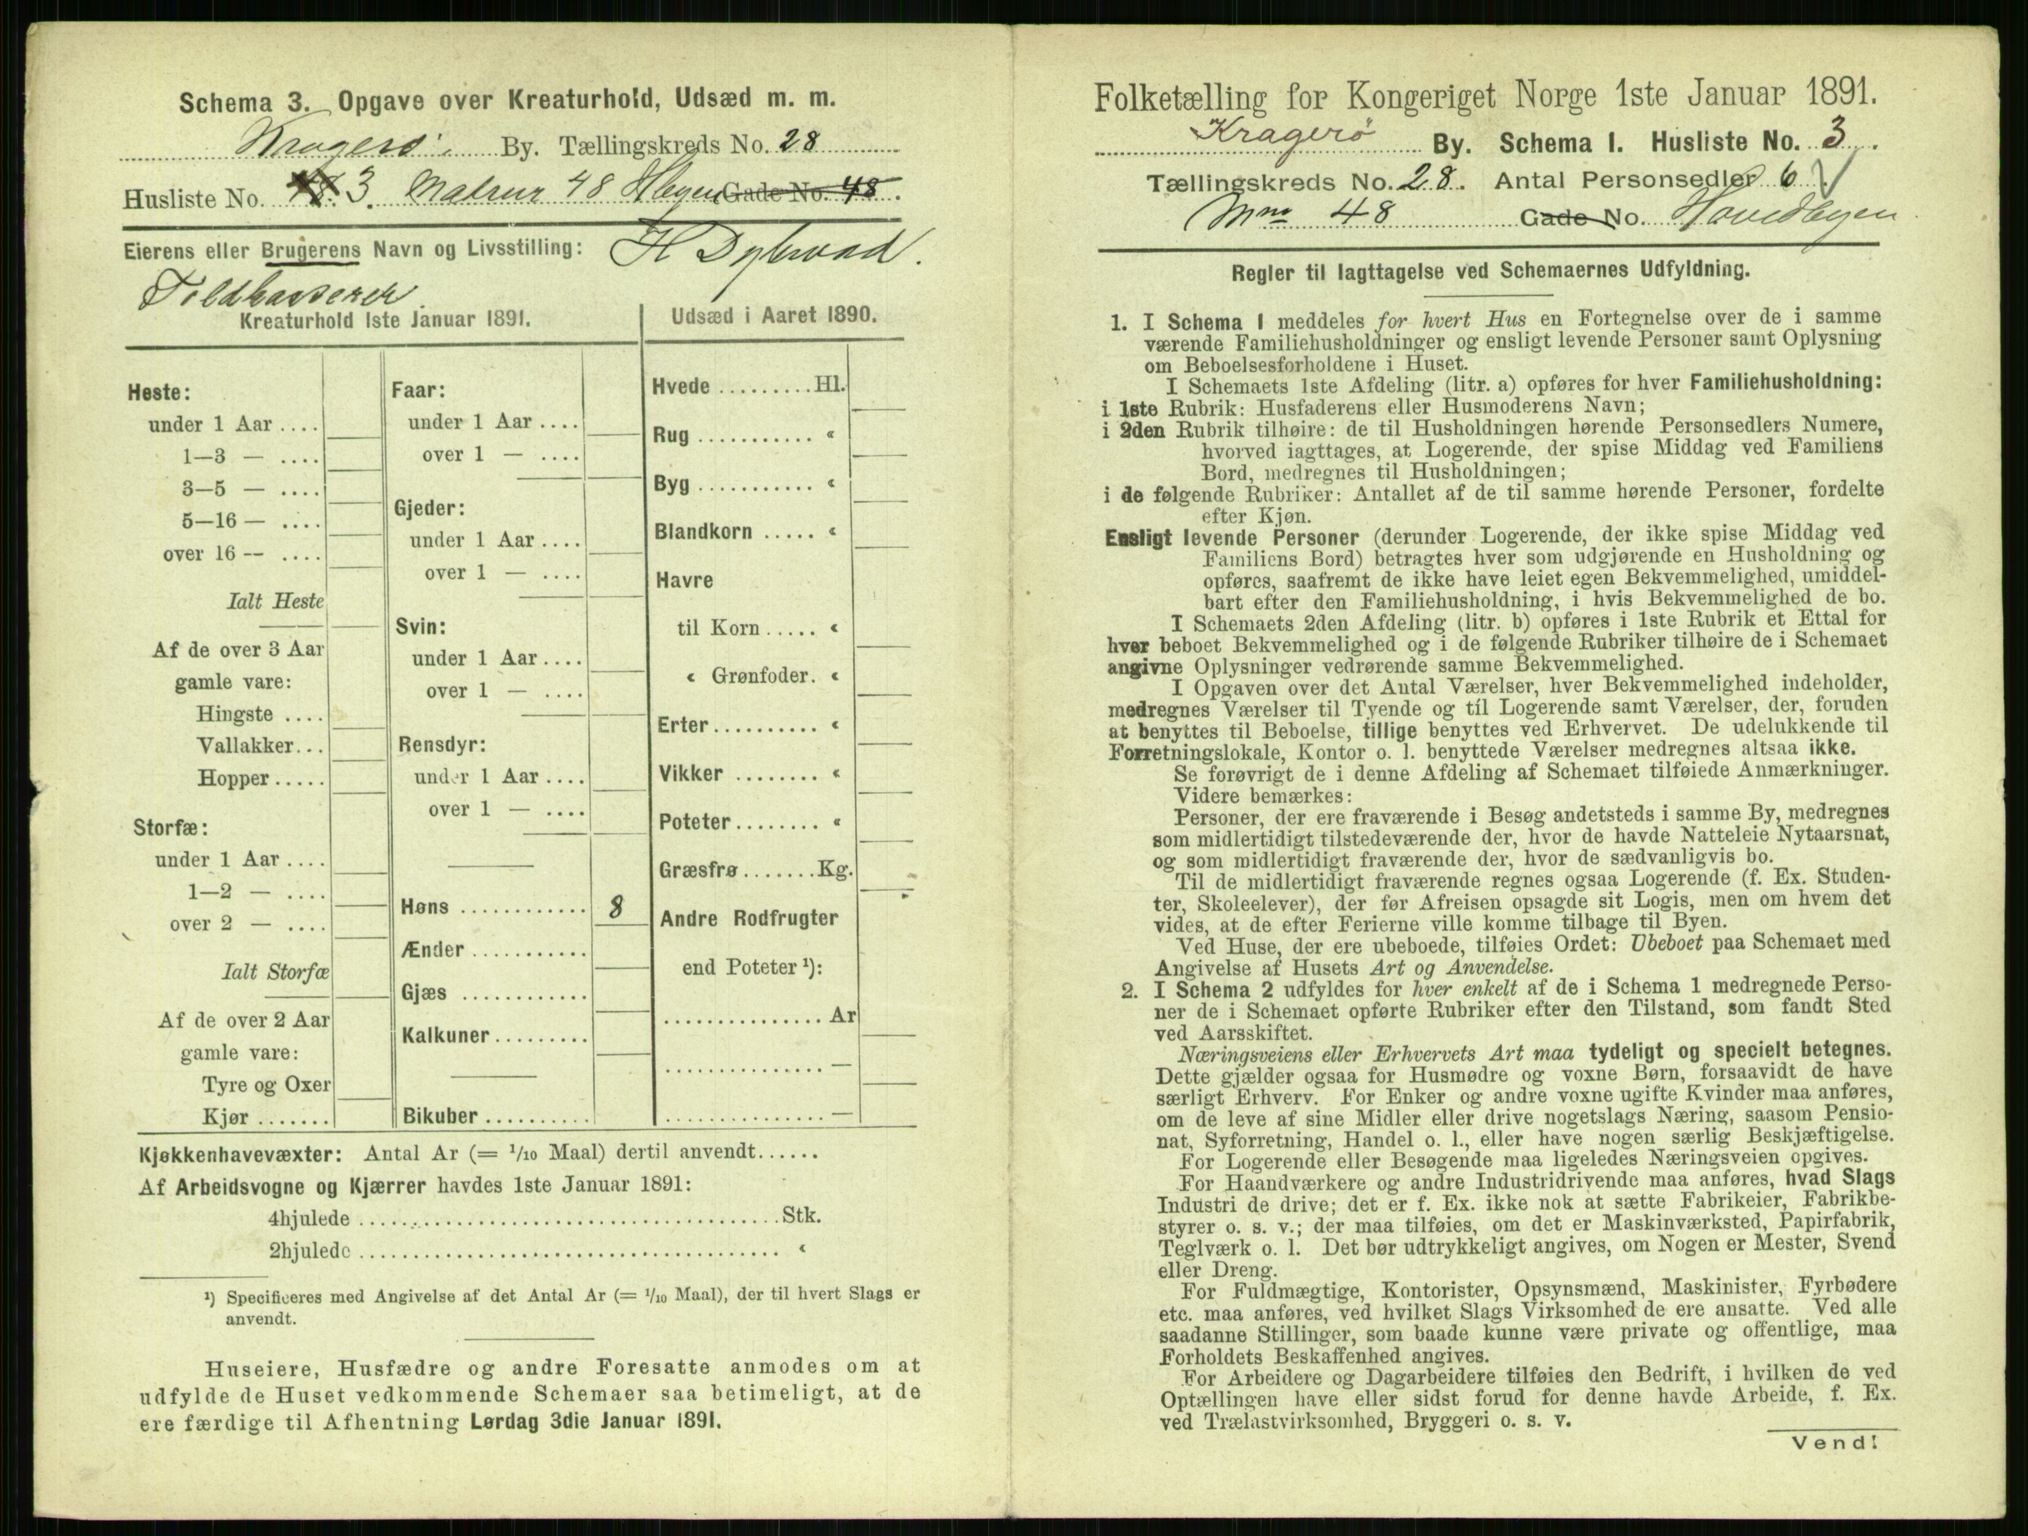 Schema 3. Opgave over Kreaturhold, Udsæd m. m.
Kragerø. By. Tællingskreds No. 28
Husliste No. 48. 3. Matrnr 48 Gade No. 48.
Eierens eller Brugerens Navn og Livsstilling: H Dybwad.
Toldkasserer.
Kreaturhold 1ste Januar 1891.
Heste:
under 1 Aar ....
1—3 — ....
3—5 — ....
5—16 — ....
over 16 — ....
Ialt Heste
Af de over 3 Aar
gamle vare:
Hingste ....
Vallakker...
Hopper .....
Storfæ:
under 1 Aar ....
1—2 — ....
over 2 — ....
Ialt Storfæ
Af de over 2 Aar
gamle vare:
Tyre og Oxer
Kjør .......
Faar:
under 1 Aar ....
over 1 — ....
Gjeder:
under 1 Aar ....
over 1 — ....
Svin:
under 1 Aar ....
over 1 — ....
Rensdyr:
under 1 Aar ....
over 1 — ....
Høns ............ 8
Ænder ...........
Gjæs ............
Kalkuner.........
Bikuber ..........
Udsæd i Aaret 1890.
Hvede .........Hl.
Rug ........... «
Byg ........... «
Blandkorn ..... «
Havre
til Korn ..... «
« Grønfoder. «
Erter .......... «
Vikker ........ «
Poteter ........ «
Græsfrø .......Kg.
Andre Rodfrugter
end Poteter ¹):
............... Ar
............... —
............... —
Kjøkkenhavevæxter: Antal Ar (= 1/10 Maal) dertil anvendt......
Af Arbeidsvogne og Kjærrer havdes 1ste Januar 1891:
4hjulede ........................................Stk.
2hjulede ........................................ «
¹) Specificeres med Angivelse af det Antal Ar (= 1/10 Maal), der til hvert Slags er
anvendt.
Huseiere, Husfædre og andre Foresatte anmodes om at
udfylde de Huset vedkommende Schemaer saa betimeligt, at de
ere færdige til Afhentning Lørdag 3die Januar 1891.
Folketælling for Kongeriget Norge 1ste Januar 1891.
Kragerø By. Schema 1. Husliste No. 3.
Tællingskreds No. 28. Antal Personsedler 6.
Mno 48 Gade No. Hovedbyen
Regler til Iagttagelse ved Schemaernes Udfyldning.
1. I Schema 1 meddeles for hvert Hus en Fortegnelse over de i samme
værende Familiehusholdninger og ensligt levende Personer samt Oplysning
om Beboelsesforholdene i Huset.
I Schemaets 1ste Afdeling (litr. a) opføres for hver Familiehusholdning:
i 1ste Rubrik: Husfaderens eller Husmoderens Navn;
i 2den Rubrik tilhøire: de til Husholdningen hørende Personsedlers Numere,
hvorved iagttages, at Logerende, der spise Middag ved Familiens
Bord, medregnes til Husholdningen;
i de følgende Rubriker: Antallet af de til samme hørende Personer, fordelte
efter Kjøn.
Ensligt levende Personer (derunder Logerende, der ikke spise Middag ved
Familiens Bord) betragtes hver som udgjørende en Husholdning og
opføres, saafremt de ikke have leiet egen Bekvemmelighed, umiddel-
bart efter den Familiehusholdning, i hvis Bekvemmelighed de bo.
I Schemaets 2den Afdeling (litr. b) opføres i 1ste Rubrik et Ettal for
hver beboet Bekvemmelighed og i de følgende Rubriker tilhøire de i Schemaet
angivne Oplysninger vedrørende samme Bekvemmelighed.
I Opgaven over det Antal Værelser, hver Bekvemmelighed indeholder,
medregnes Værelser til Tyende og til Logerende samt Værelser, der, foruden
at benyttes til Beboelse, tillige benyttes ved Erhvervet. De udelukkende til
Forretningslokale, Kontor o. l. benyttede Værelser medregnes altsaa ikke.
Se forøvrigt de i denne Afdeling af Schemaet tilføiede Anmærkninger.
Videre bemærkes:
Personer, der ere fraværende i Besøg andetsteds i samme By, medregnes
som midlertidigt tilstedeværende der, hvor de havde Natteleie Nytaarsnat,
og som midlertidigt fraværende der, hvor de sædvanligvis bo.
Til de midlertidigt fraværende regnes ogsaa Logerende (f. Ex. Studen-
ter, Skoleelever), der før Afreisen opsagde sit Logis, men om hvem det
vides, at de efter Ferierne ville komme tilbage til Byen.
Ved Huse, der ere ubeboede, tilføies Ordet: Ubeboet paa Schemaet med
Angivelse af Husets Art og Anvendelse.
2. I Schema 2 udfyldes for hver enkelt af de i Schema 1 medregnede Perso-
ner de i Schemaet opførte Rubriker efter den Tilstand, som fandt Sted
ved Aarsskiftet.
Næringsveiens eller Erhvervets Art maa tydeligt og specielt betegnes.
Dette gjælder ogsaa for Husmødre og voxne Børn, forsaavidt de have
særligt Erhverv. For Enker og andre voxne ugifte Kvinder maa anføres,
om de leve af sine Midler eller drive nogetslags Næring, saasom Pensio-
nat, Syforretning, Handel o. l., eller have nogen særlig Beskjæftigelse.
For Logerende eller Besøgende maa ligeledes Næringsveien opgives.
For Haandværkere og andre Industridrivende maa anføres, hvad Slags
Industri de drive; det er f. Ex. ikke nok at sætte Fabrikeier, Fabrikbe-
styrer o. s. v.; der maa tilføies, om det er Maskinværksted, Papirfabrik,
Teglværk o. l. Det bør udtrykkeligt angives, om Nogen er Mester, Svend
eller Dreng.
For Fuldmægtige, Kontorister, Opsynsmænd, Maskinister, Fyrbødere
etc. maa anføres, ved hvilket Slags Virksomhed de ere ansatte. Ved alle
saadanne Stillinger, som baade kunne være private og offentlige, maa
Forholdets Beskaffenhed angives.
For Arbeidere og Dagarbeidere tilføies den Bedrift, i hvilken de ved
Optællingen have eller sidst forud for denne havde Arbeide, f. Ex.
ved Trælastvirksomhed, Bryggeri o. s. v.
Vend!